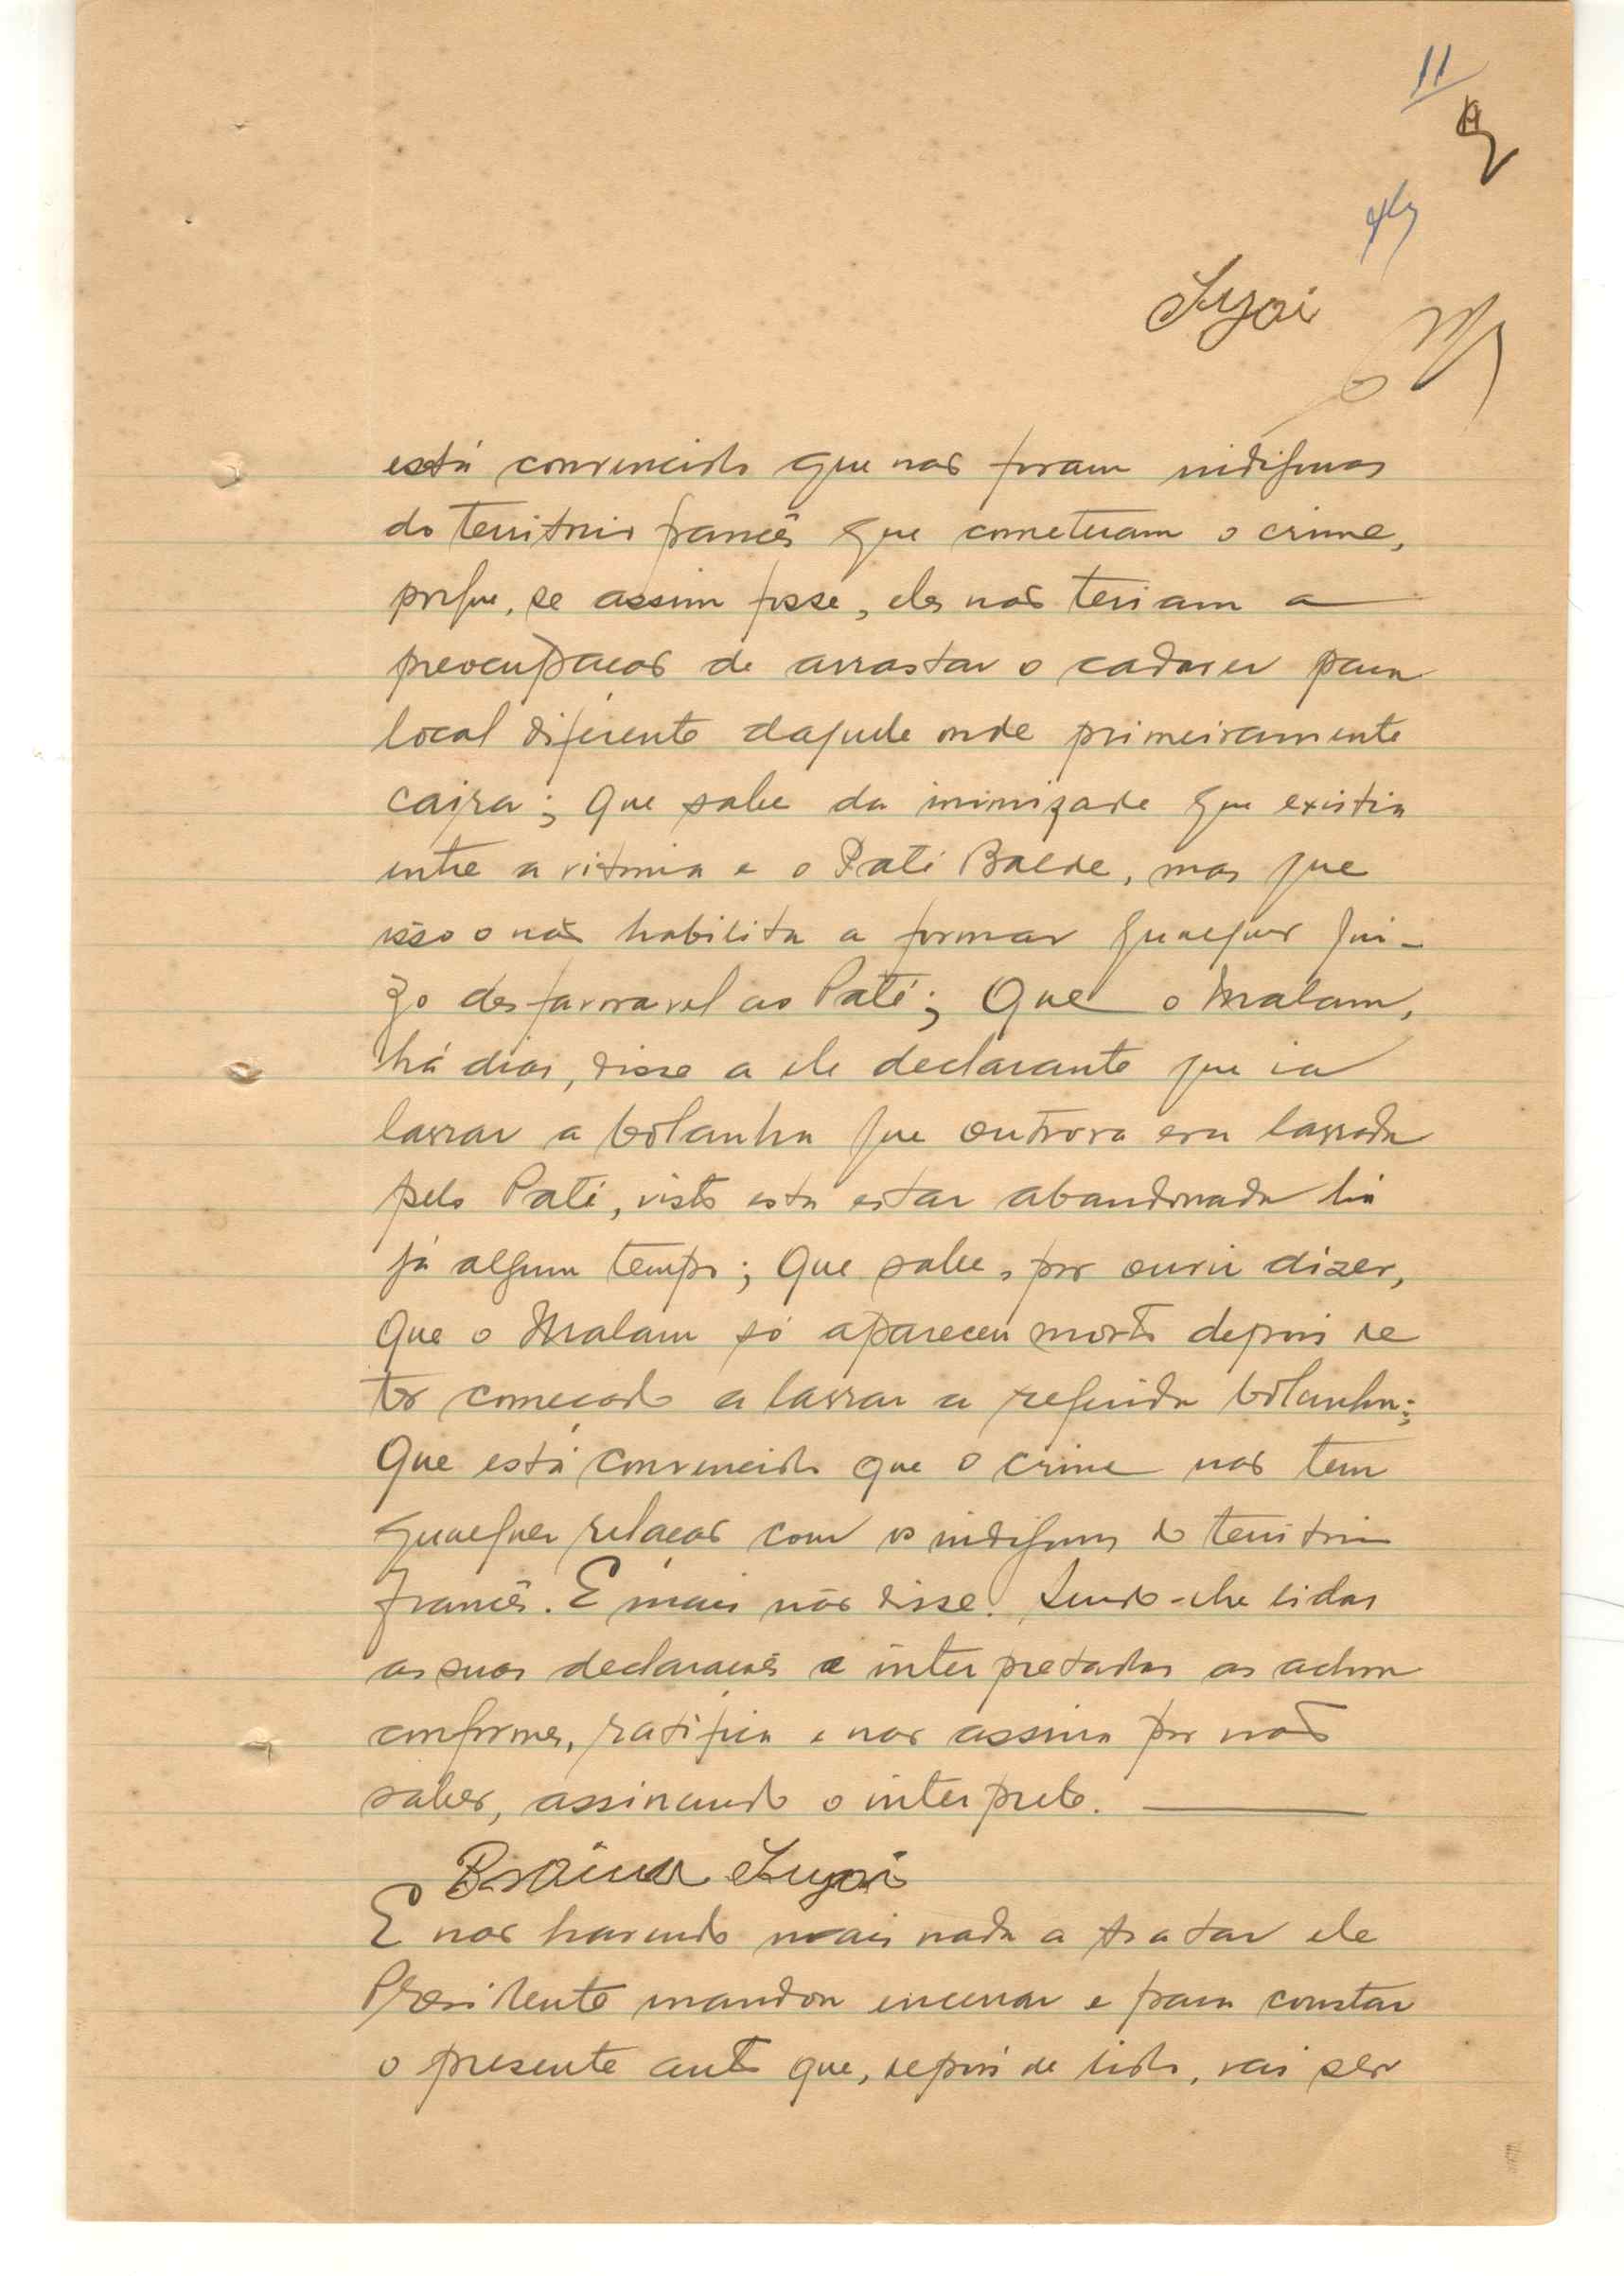 11
Injai
está convencido que não foram indígenas
do território francês que cometeram o crime,
porque, se assim fosse, eles não teriam a
preocupação de arrastar o cadaver para
local diferente daquele onde primeiramente
caira; Que sabe da inimizade que existia
entre a vitima e o Pati Balde, mas que
isso o não habilita a formar qualquer jui-
zo desfavoravel ao Paté; Que o Malam,
há dias, disse a ele declarante que ia
lavrar a bolanha que outrora era lavrada
pelo Paté, visto esta estar abandonada há
já algum tempo; Que sabe, por ouvir dizer,
Que o Malam só apareceu morto depois de
ter começado a lavrar a referida bolanha;
Que está convencido que o crime não tem
qualquer relação com os indígenas do território
francês. E mais não disse. Sendo-lhe lidas
as suas declarações e interpretadas as achou
conformes, ratifica e não assina por não
saber, assinando o interprete.
Braima Injai
E não havendo mais nada a tratar ele
Presidente mandou encerrar e para constar
o presente auto que, depois de lido, vai ser